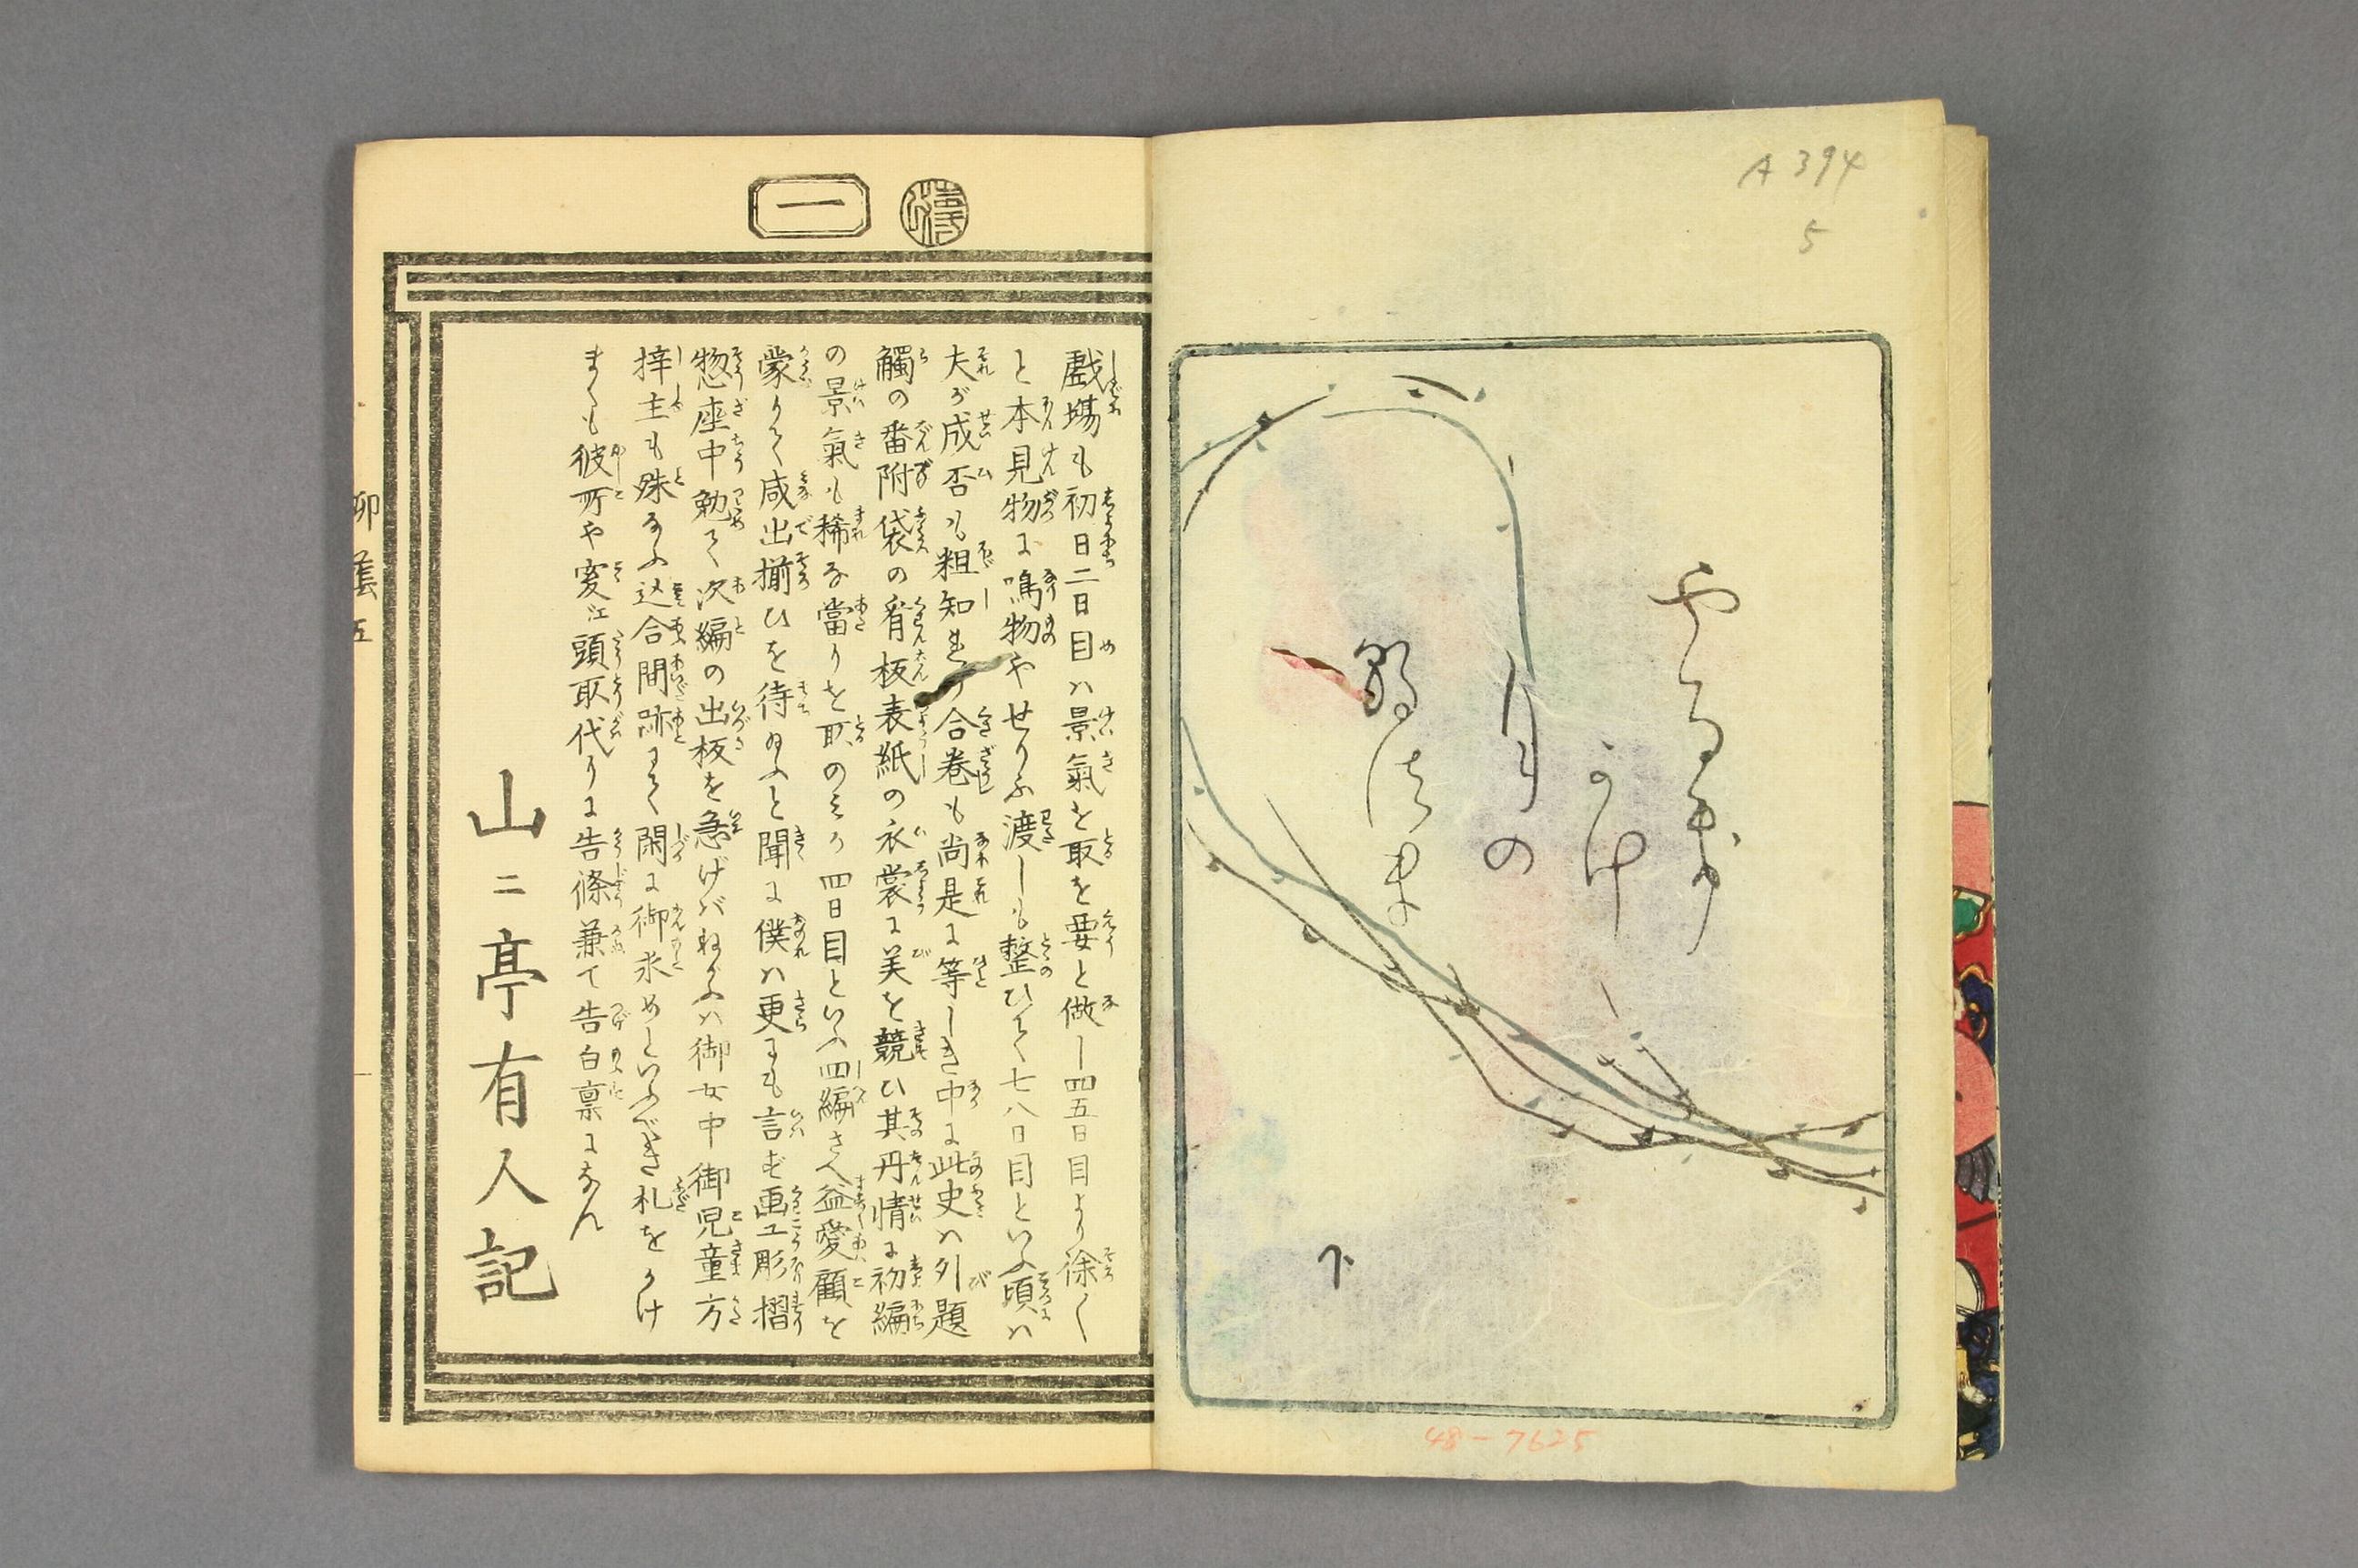 A 394
5
やなぎ
かけ
月の
朝つま
下
48-7625
一
戯場も初日二日目ハ景氣を取を要と做し四五日目より徐々
と本見物に鳴物やせりふ渡しも整ひて七八日目といふ頃ハ
夫が成否も粗知るゝ合巻も尚是に等しき中に此史ハ外題
觸の番附袋の看板表紙の衣裳に美を競ひ其丹情に初編
の景氣も稀な當りを取のミか四日目といふ四編さへ益愛顧を
蒙りて咸出揃ひを待給ふと聞に僕ハ更にも言ず画工彫摺
惣座中勉て次編の出板を急げバねがふハ御女中御児童方
梓主も殊なふ込合間跡にて閑に御求めといふべき札をかけ
まくも彼所や変江頭取代りに告條兼て告白禀になん
山々亭有人記
柳蔭 五